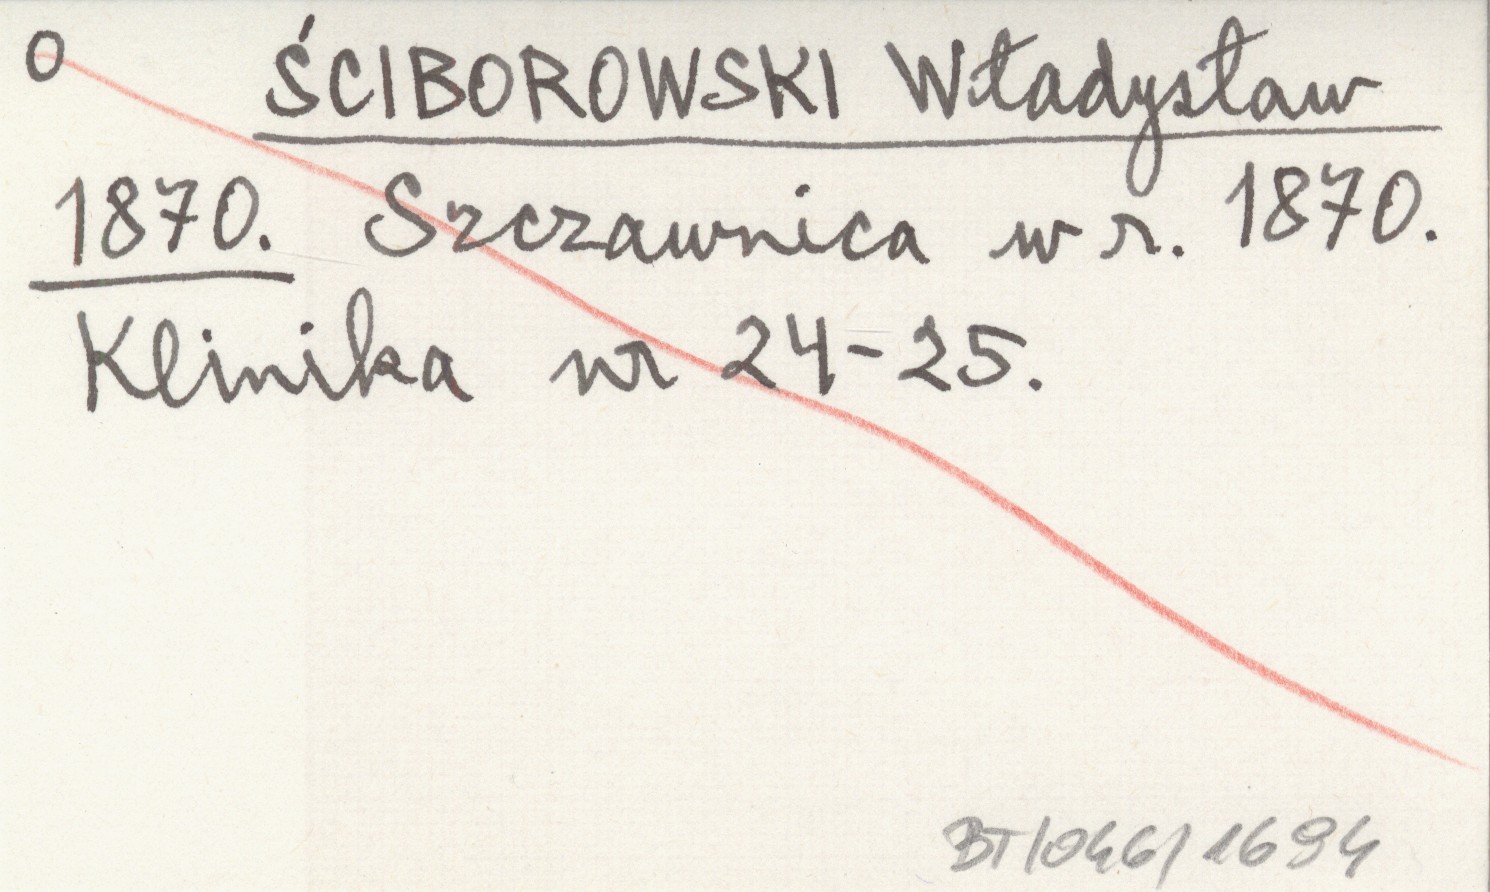 O ŚCIBOROWSKI Władysław
1870. Szczawnica w r. 1870.
Klinika nr 24-25.
BT/046/1694